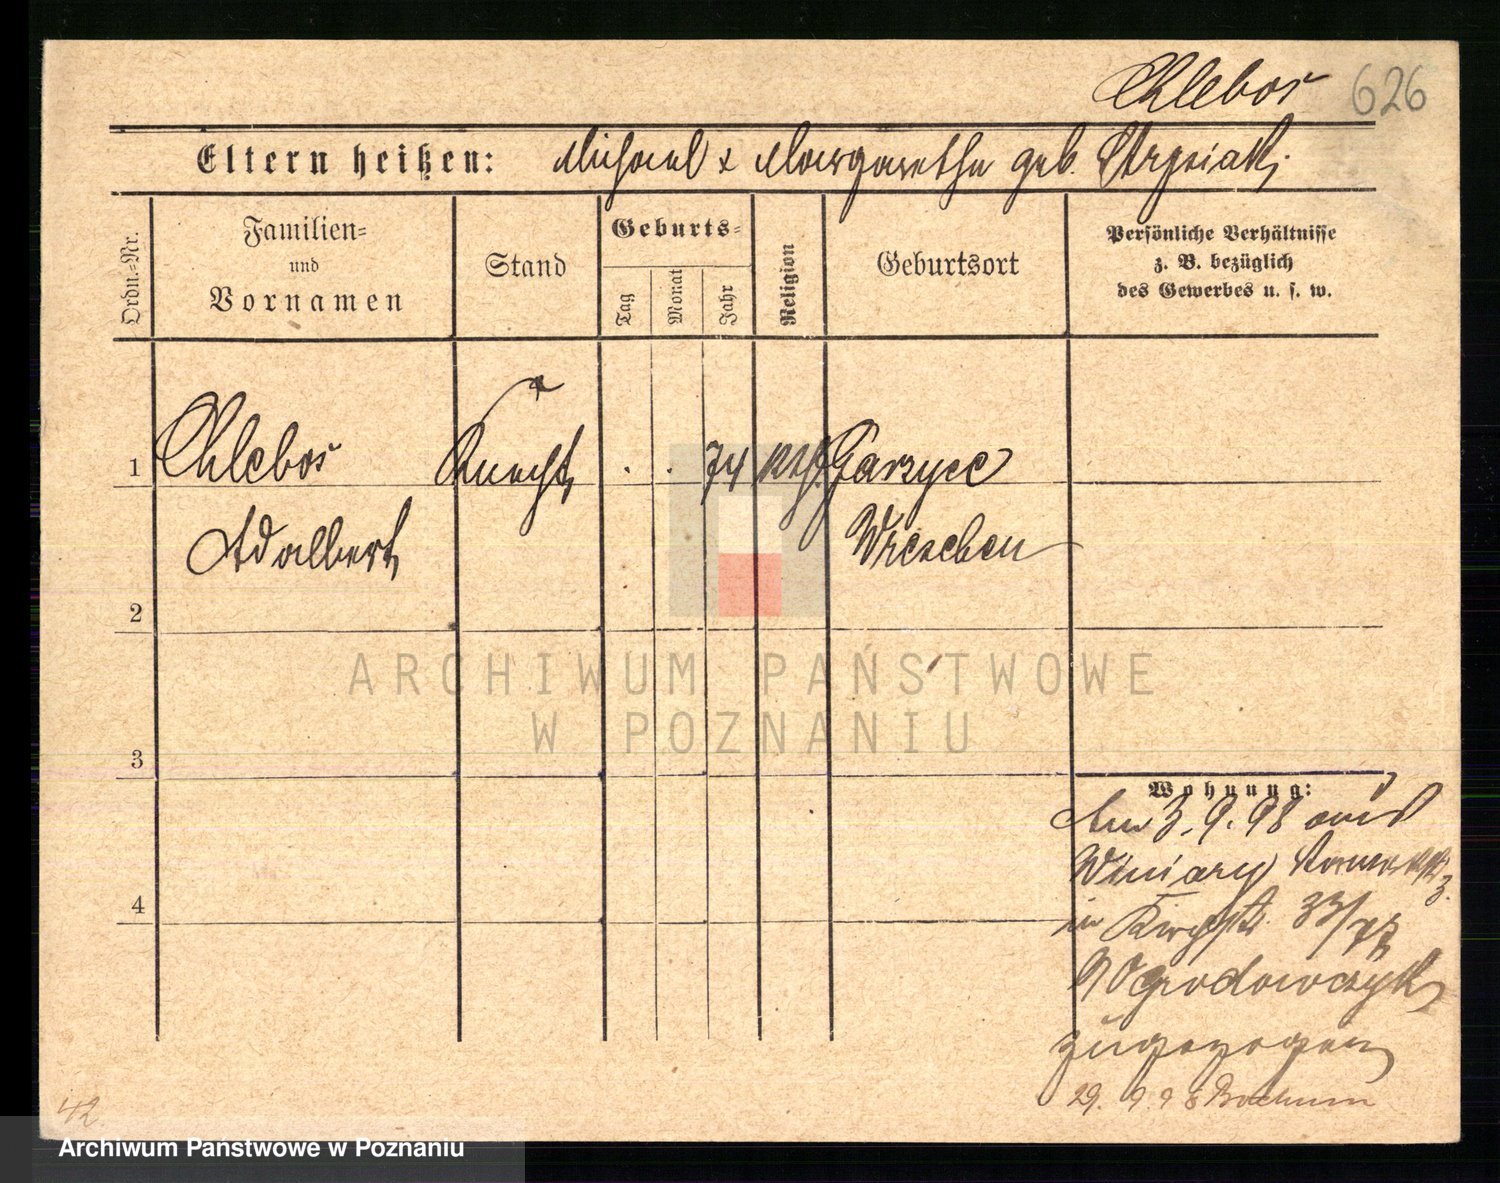 Chlebos 626
Eltern heißen: Michael & Margarethe geb.
Ordn.=Nr.
Familien=
und
Vornamen
Stand
Geburts=
Tag
Monat
Jahr
Religion
Geburtsort
Persönliche Verhältnisse
z. B. bezüglich
des Gewerbes u. s. w.
1 Chlebos Knecht . . 74 kth. Garzyce
Adalbert Wreschen
2
3
4
Wohnung:
Am 3. 9. 98 aus
Winiary
in 33/
Ogrodowczyk
zugezogen
29. 9. 98 Bochum
42.
ARCHIWUM PAŃSTWOWE
W POZNANIU
Archiwum Państwowe w Poznaniu